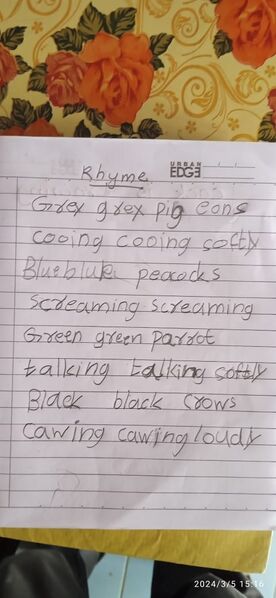 URBAN
EDGE
Rhyme
Grey grey pig eons
cooing cooing softly
Blueblue peacocks
screaming screaming
Green green parrot
talking talking softly
Black black crows
cawing cawing loudly
2024/3/5 15:16